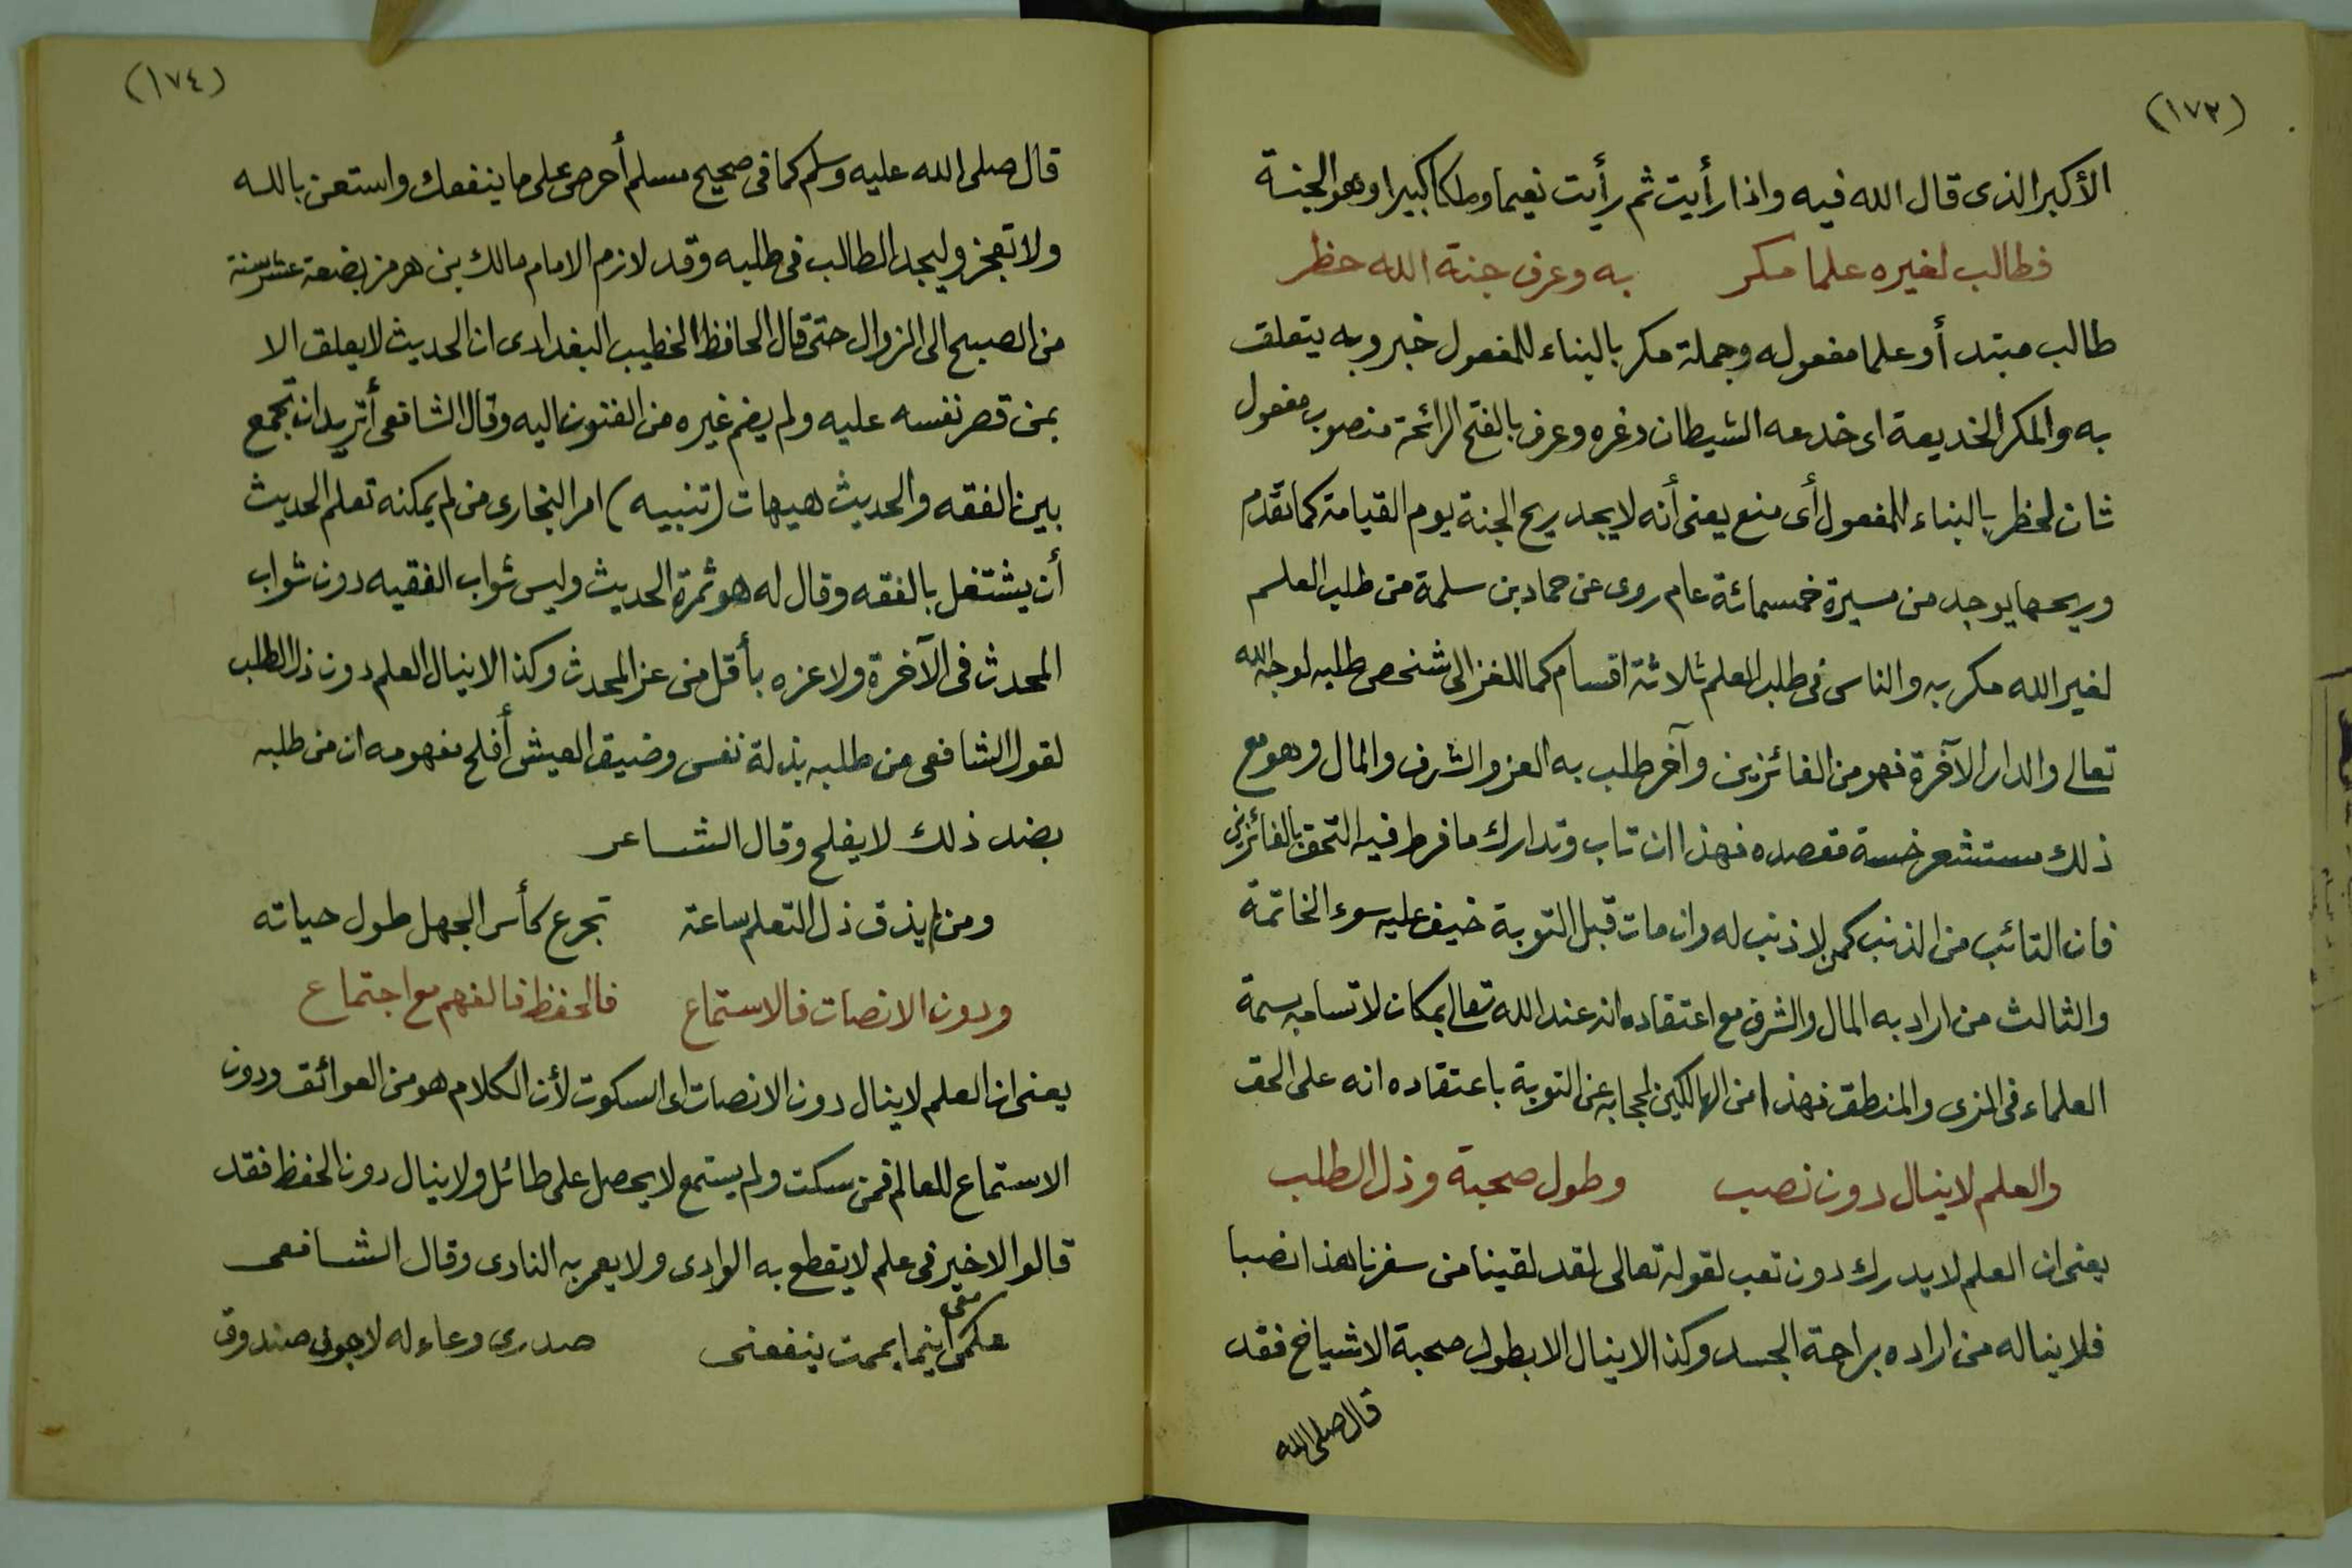 (١٧٣)
الأكبر الذى قال الله فيه واذا رأيت ثم رأيت نعيما وملكا كبيرا وهو الجنة
فطالب لغيره علما مكر به وعرف جنة الله حظر
طالب مبتدأ وعلما مفعوله وجملة مكر بالبناء للمفعول خبر وبه يتعلق
به والمكر الخديعة اى خدعه الشيطان وغره وعرف بالفتح الرائحة منصوب مفعول
ثان لحظر بالبناء للمفعول أى منع يعنى أنه لا يجد ريح الجنة يوم القيامة كما تقدم
وريحها يوجد من مسيرة خمسمائة عام روى عن حماد بن سلمة من طلب العلم
لغير الله مكر به والناس فى طلب العلم ثلاثة اقسام كما للغزالى شخص طلبه لوجه الله
تعالى والدار الآخرة فهو من الفائزين وآخر طلب به العز والشرف والمال وهو مع
ذلك مستشعر خسة مقصده فهذا ان تاب وتدارك ما فرط فيه التحق بالفائزين
فان التائب من الذنب كمن لا ذنب له وان مات قبل التوبة خيف عليه سوء الخاتمة
والثالث من اراد به المال والشرف مع اعتقاده انه عند الله تعالى بمكان لاتسامه بسمة
العلماء فى الزى والمنطق فهذا من الهالكين لحجابه عن التوبة باعتقاده انه على الحق
والعلم لا ينال دون نصب وطول صحبة وذل الطلب
يعنى ان العلم لا يدرك دون تعب لقوله تعالى لقد لقينا من سفرنا هذا نصبا
فلا يناله من اراده براحة الجسد وكذا لا ينال الا بطول صحبة الاشياخ فقد
قال صلى الله
(١٧٤)
قال صلى الله عليه وسلم كما فى صحيح مسلم أحرص على ما ينفعك واستعن بالله
ولا تعجز وليجد الطالب فى طلبه وقد لازم الامام مالك بن هرمز بضعة عشر سنة
من الصبح الى الزوال حتى قال الحافظ الخطيب البغدادى ان الحديث لا يعلق الا
بمن قصر نفسه عليه ولم يضم غيره من الفنون اليه وقال الشافعى أتريد ان تجمع
بين الفقه والحديث هيهات (تنبيه) امر البخارى من لم يمكنه تعلم الحديث
أن يشتغل بالفقه وقال له هو ثمرة الحديث وليس ثواب الفقيه دون ثواب
المحدث فى الآخرة ولا عزه بأقل من عز المحدث وكذا لا ينال العلم دون ذل الطلب
لقول الشافعى من طلبه بذلة نفس وضيق العيش أفلح مفهومه ان من طلبه
بضد ذلك لا يفلح وقال الشاعر
ومن لم يذق ذل التعلم ساعة تجرع كأس الجهل طول حياته
ودون الانصات فالاستماع فالحفظ فالفهم مع اجتماع
يعنى ان العلم لا ينال دون الانصات اى السكوت لأن الكلام هو من العوائق ودون
الاستماع للعالم فمن سكت ولم يستمع لا يحصل على طائل ولا ينال دون الحفظ فقد
قالوا لا خير فى علم لا يقطع به الوادى ولا يعمر به النادى وقال الشافعى
علمى معى اينما يممت ينفعنى صدرى وعاء له لا جوف صندوق